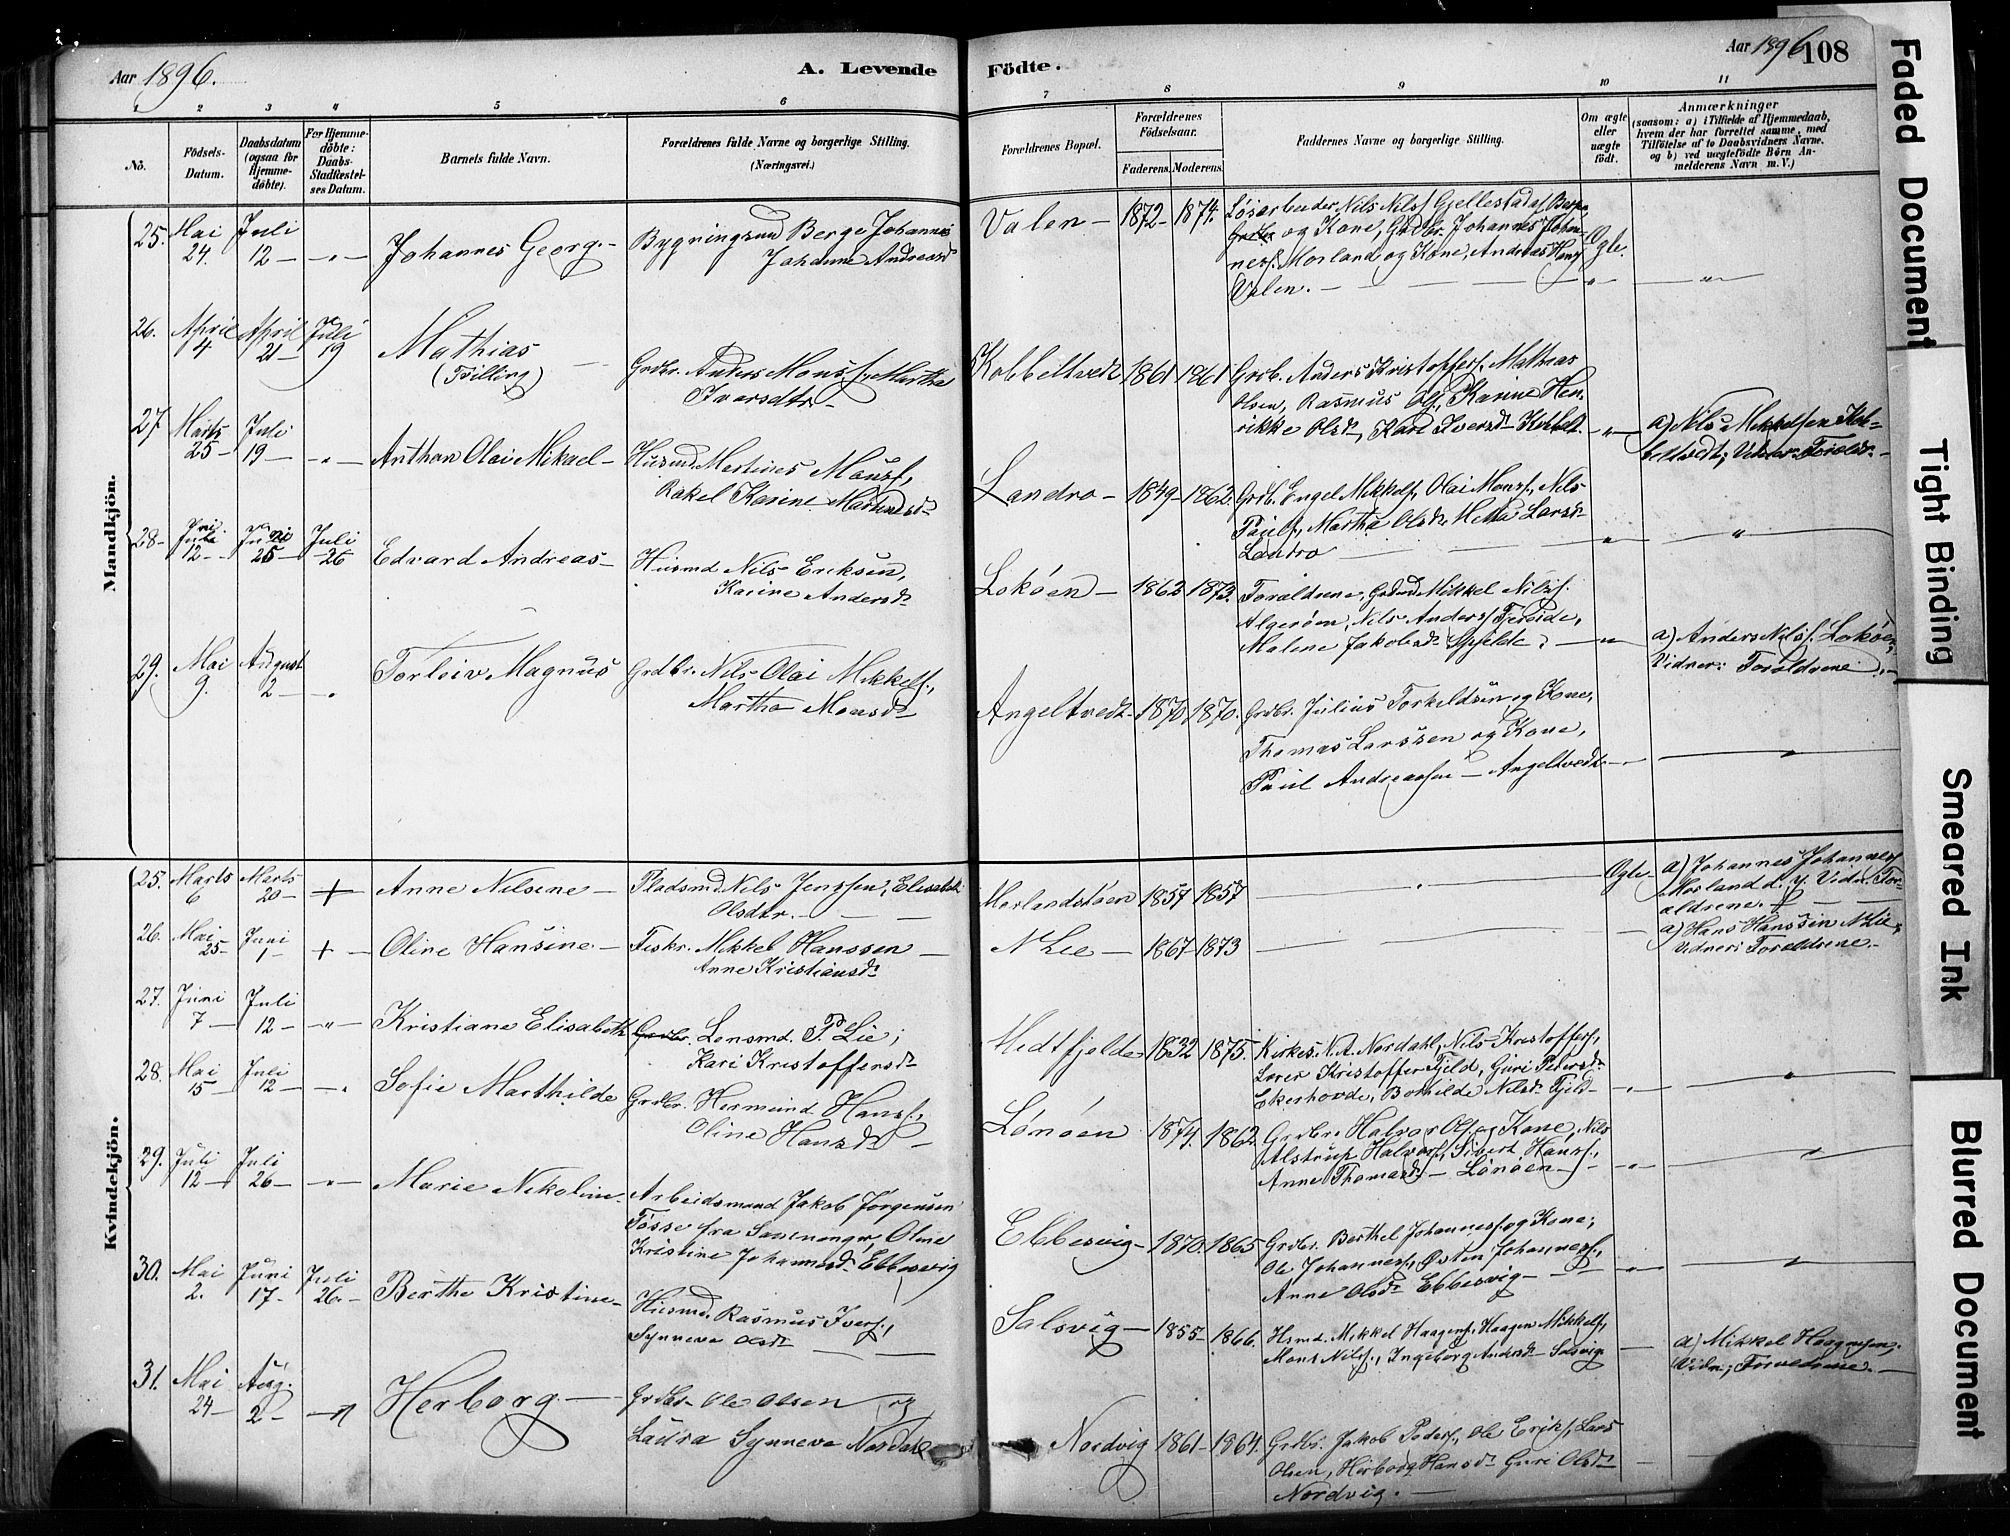 Aar 1896.
A. Levende
Födte.
Aar 1896
108
1 2 3 4 5 6
7 8 9 10 11
No.
Födsels-
Datum.
Daabsdatum
(ogsaa for
Hjemme-
döbte).
For Hjemme-
döbte:
Daabs-
Stadfæstel-
ses Datum.
Barnets fulde Navn.
Forældrenes fulde Navne og borgerlige Stilling.
(Næringsvei.)
Forældrenes Bopæl.
Forældrenes
Födselsaar.
Faderens. Moderens.
Faddernes Navne og borgerlige Stilling.
Om ægte
eller
uægte
födt.
Anmærkninger
(saasom: a) i Tilfælde af Hjemmedaab,
hvem der har forrettet samme, med
Tilföielse af to Daabsvidners Navne.
og b) ved uægtefödte Börn An-
melderens Navn m. V.)
Mandkjön.
25. Mai 24. Juli 12 — " — Johannes Georg. — Bygningsmd Berge Johannes
Johanne Andreasd
Valen — 1872 — 1874. Løsarbeider Nils Nilsf Gjellestad af Bergen
og Kone, Grdbr. Johannes Johan-
nesf. Morland og Kone, Andreas Hansf
Valen. — Ægte. "
26. April 4 April 21 — Juli 19 Mathias
(Tvilling)
Grdbr. Anders Monsf., Martha
Iversdtr. —
Kobbeltvedt 1861 1861 Grdb. Anders Kristoffersf. Mathias
Olsen, Rasmus Olsf., Karine Hen-
rikke Olsdtr, Kari Iversdtr Kobbelt. — " — a) Nils Mikkelsen Kob-
beltvedt; Vidner Foreldr. —
27 Marts 25 — Juli 19 — " — Anthon Olai Mikael — Husmd Martines Monsf.,
Rakel Karine Martinusd —
Landro — 1849 — 1862. Grdb. Engel Mikkelsf., Olai Monsf., Nils
Paulsf, Martha Olsdtr Metta Larsdtr
Landro "
28 — Juni 12 — Juni 25 Juli 26 Edvard Andreas — Husmd Nils Eriksen,
Karine Andersdtr
Lokøen — 1862 1873. Forældrene, Grdmd Mikkel Nilsf.
Algerøen, Nils Andersf Tjeide,
Malene Jakobsdtr Spjelde. — " a) Anders Nilsf. Lokøen;
Vidner: Foreldrene. —
29. Mai 9. August 2 — " Torleiv Magnus Grdbr. Nils Olai Mikkelsf.,
Martha Monsdtr
Angeltvedt — 1870 1870. Grdbr. Julius Torkeldsen og Kone,
Thomas Larssen og Kone,
Paul Andreassen — Angeltvedt — "
Kvindekjön.
25. Marts 6 Marts 20 — + Anne Nilsine — Pladsmd Nils Jenssen, Elisabeth
Olsdtr. —
Morlandstøen 1857 1857 Ægte a) Johannes Johannesf
Morland d. y. Vidn. For-
ældrene. —
26. Mai 25 Juni 1 — + — Oline Hansine — Fiskr. Mikkel Hanssen —
Anne Kristiansdtr
N Lie — 1867 — 1873 — a) Hans Hanssen N Lie;
Vidner: Foreldrene —
27. Juni 7 — Juli 12 — " — Kristiane Elisabeth Grdbr. Lensmd. P. Lie;
Kari Kristoffersdtr
Midtfjelde 1832 1875. Kirkes. N. A. Nordahl, Nils Kristoffersf.,
Lærer Kristoffer Fjeld, Guri Pedersdtr
Ekerhovde, Bothilde Nilsdtr Fjeld — " — "
28. Mai 15 Juli 12 — " Sofie Marthilde Grdbr. Hermund Hansf.,
Oline Hansdtr —
Lønøen 1874. 1862 Grdbr. Halvor Olsf og Kone, Nils
Alstrup Halvorsf., Sivert Hansf.,
Anne Thomasdtr — Lønøen — " — "
29. Juli 12 — Juli 26 — " — Marie Nikoline. Arbeidsmand Jakob Jørgensen
Tøsse fra Samnanger, Oline
Kristine Johannesd. Ebbesvig
Ebbesvig — 1870. 1865 Grdbr. Berthel Johannesf. og Kone,
Ole Johannesf., Østen Johannesf.,
Anne Olsdtr Ebbesvig — " — "
30. Mai 2. Juni 17 — Juli 26. — Berthe Kristine — Husmd. Rasmus Iversf.,
Synneva Olsdtr —
Solsvig — 1855 — 1866. Hsmd. Mikkel Haagensf., Haagen Mikkelsf.,
Mons Nilsf., Ingeborg Andersdtr Solsvig — a) Mikkel Haagensen;
Vidn.; Foreldrene. —
31. Mai 24 — Aug. 2 — " Herborg — Grdbr. Ole Olsen og
Laura Synneva Nordal
Nordvig 1861 — 1861. Grdbr. Jakob Pedersf., Ole Eriksf., Lars
Olsen, Herborg Hansdtr Guri Olsdtr
Nordvig. —
Faded Document
Tight Binding
Smeared Ink
Blurred Document